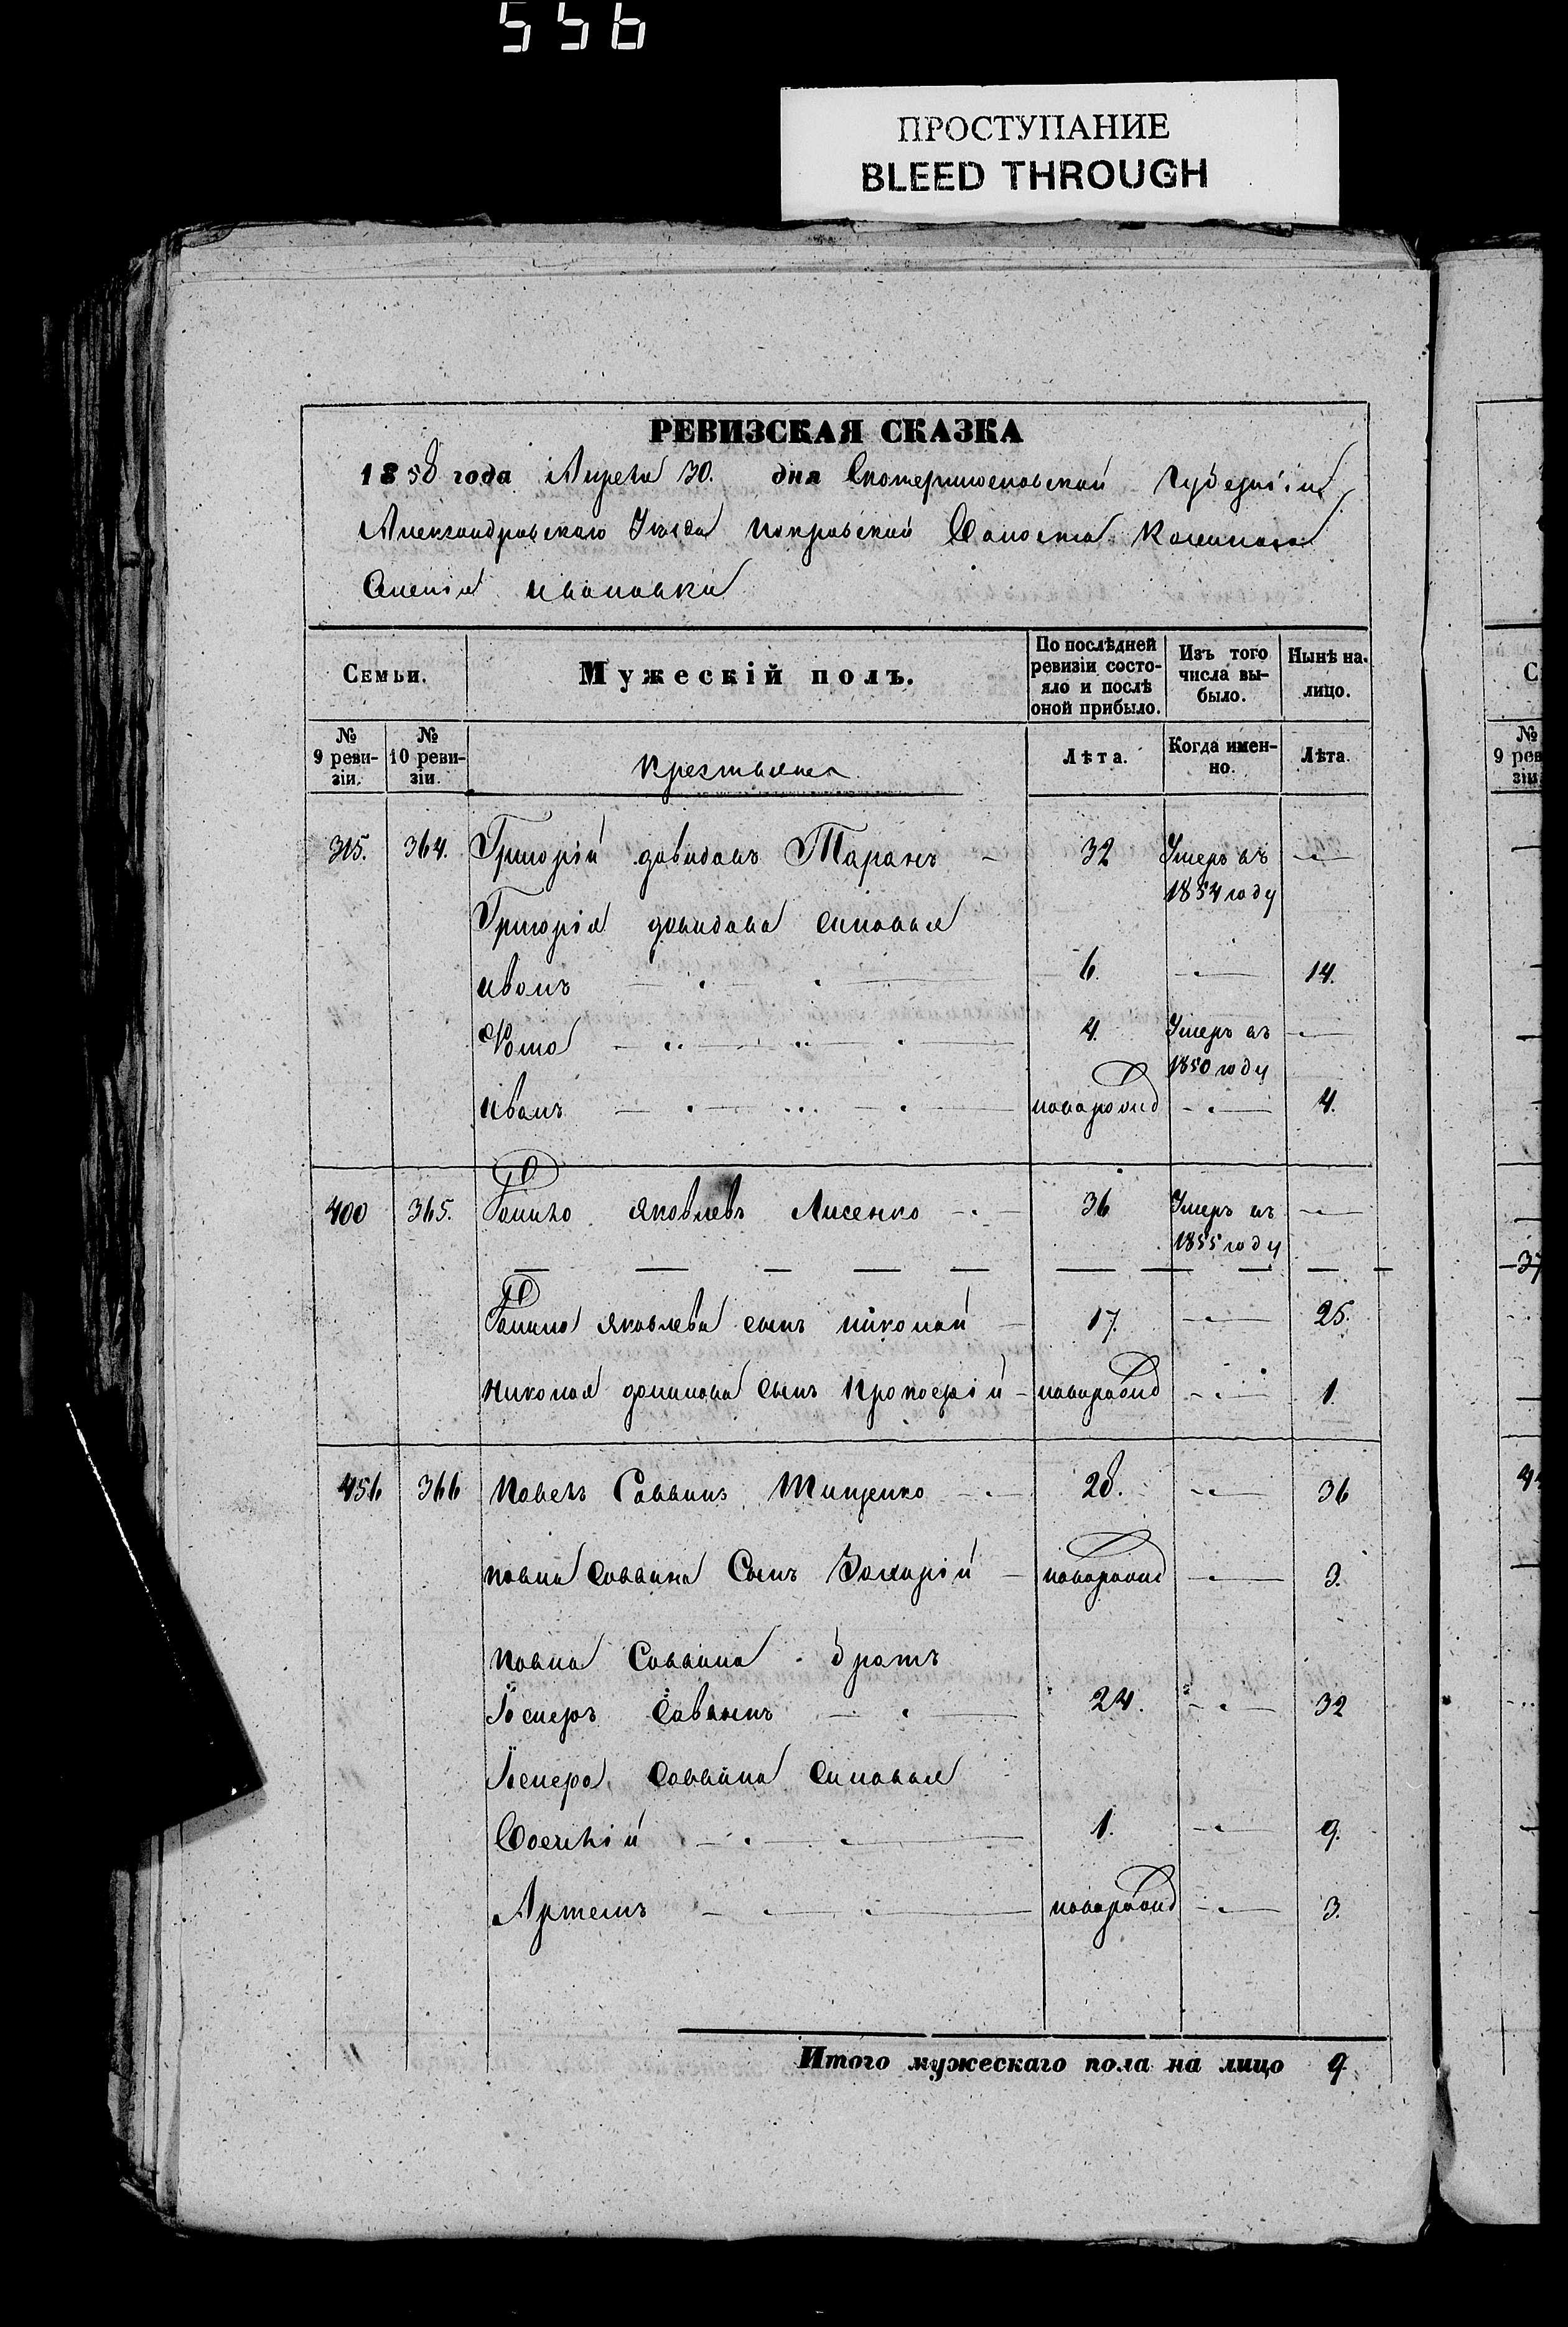 556
ПРОСТУПАНИЕ
BLEED THROUGH
РЕВИЗСКАЯ СКАЗКА
1858 года Апреля 30. дня Екатеринославской Губерніи
Александровскаго Уезда Покровской Волости Казеннаго
Селенія Ивановки
Семьи. Мужескій полъ. По послѣдней ревизіи состо- яло и послѣ оной прибыло. Изъ того числа вы- было. Нынѣ на- лицо.
№ 9 реви- зіи. № 10 реви- зіи. Крестьяне Лѣта. Когда имен- но. Лѣта.
315. 364. Григорій давидовъ Таранъ 32 Умеръ въ
1854 году
Григорія давидова сыновья
иванъ 6. 14.
Фома 4. Умеръ въ
1850 году
иванъ новорожд 4.
400 365. Данило Яковлевъ Лисенко 36 Умеръ въ
1855 году
Данила Яковлева сынъ николай 17. 25.
Николая данилова сынъ Прокофій новорожд 1.
456 366 Павелъ Саввинъ Тищенко 28. 36
павла Саввина Сынъ Захарій новорожд 3.
павла Саввина братъ
Петръ Саввинъ 24. 32
Саввина Сыновья
1. 9.
Артемъ новорожд 3.
Итого мужескаго пола на лицо 9
№ 9 рев зіи
37